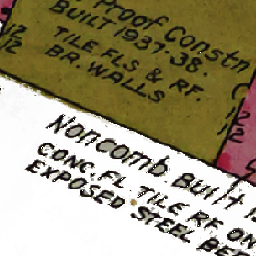 Proof Constn
BUILT 1937-38.
TILE FLS & RF.
BR. WALLS
12
12
12
12
Noncomb Built
CONC. FL TILE RF ON
EXPOSED STEEL